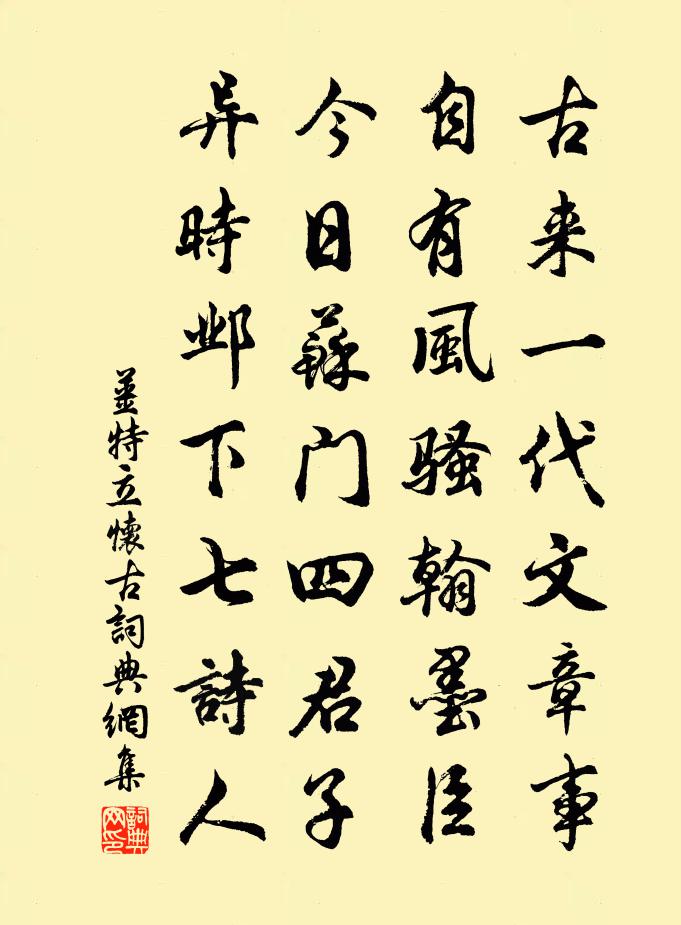 古来一代文章事
自有風骚翰墨臣
今日蘇门四君子
异時邺下七詩人
姜特立懷古詞典網集
詞典网印